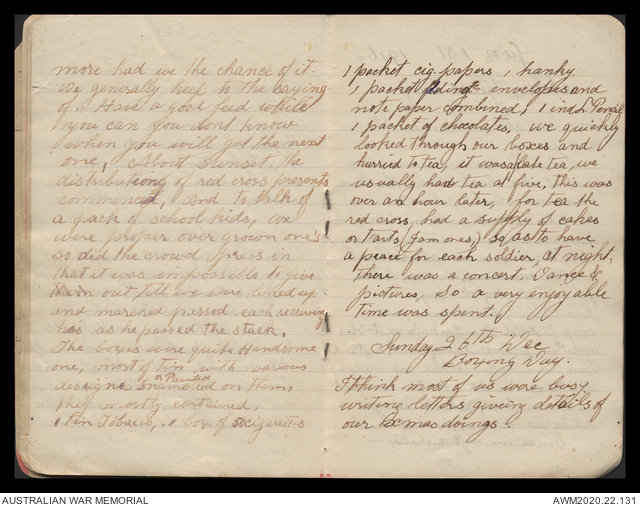 more had we the chance of it.
We generally keep to the saying
of. Have a good feed while
you can you dont know
when you will get the next
one, About sunset the
distributiong of red cross presents
commenced, And to talk of
a pack of school kids, we
were proper over grown one's
so did the crowd press in
that it was impossible to give
them out till we were lined up
and marched passed each recieving
has as he passed the stack.
The boxes were quite Handsome
one, most of tin with various
designe enameled or Painted on them,
they mostly contained,
1 tin Tobacco, 1 box of 50 cigarettes
1 packet cig. papers, 1 hanky
1 packet envelopes and
note paper combined, 1 ind. Pencil
1 packet of chocolates, we quickly
looked through our boxes and
hurried to tea, it was a late tea, we
usually had tea at five, this was
over an hour later, for tea the
red cross had a supply of cakes
or tarts (Jam ones,) so as to have
a peace for each soldier, at night,
there was a concert, Dance &
pictures, So a very enjoyable
time was spent.
Sunday 26th Dec
Boxong Day.
I think most of us were busy
writing letters giveing details of
our Exmas doings.
AUSTRALIAN WAR MEMORIAL
AWM2020.22.131